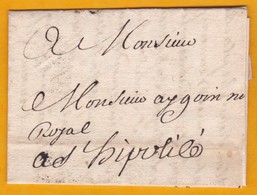 A Monsieur
Monsieur aygoin no
Royal
a st hipolité